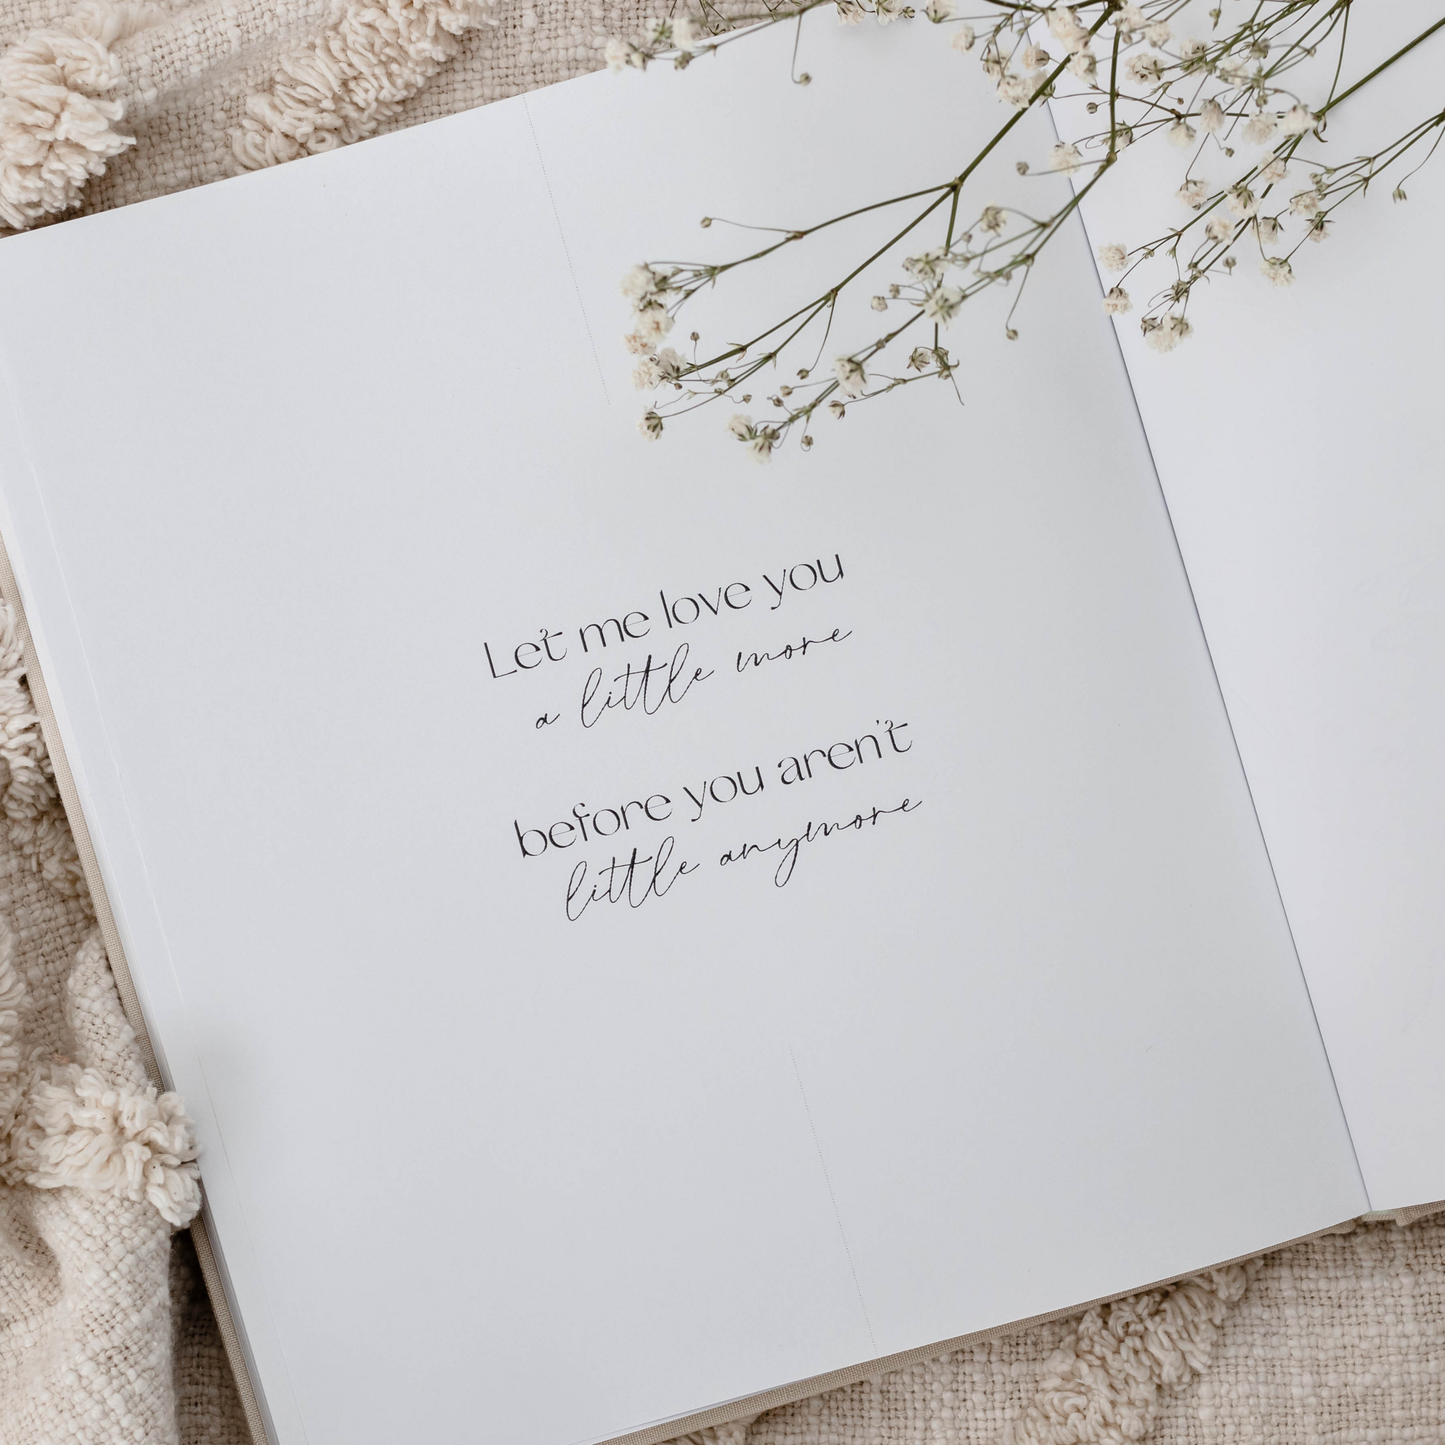 Let me love you
a little more
before you aren't
little anymore